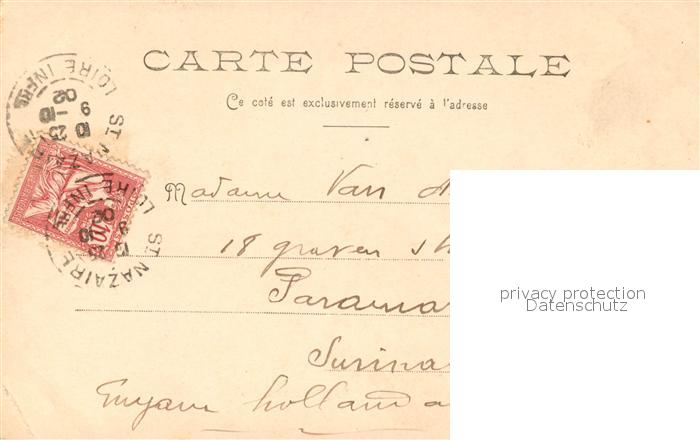 CARTE POSTALE
Ce coté est exclusivement réservé à l'adresse
ST NAZAIRE
LOIRE INFRE
9
02
Madame Van
18 graven
Parama
Surina
Guyane hollanda
privacy protection
Datenschutz
ST NAZAIRE
LOIRE INFRE
10